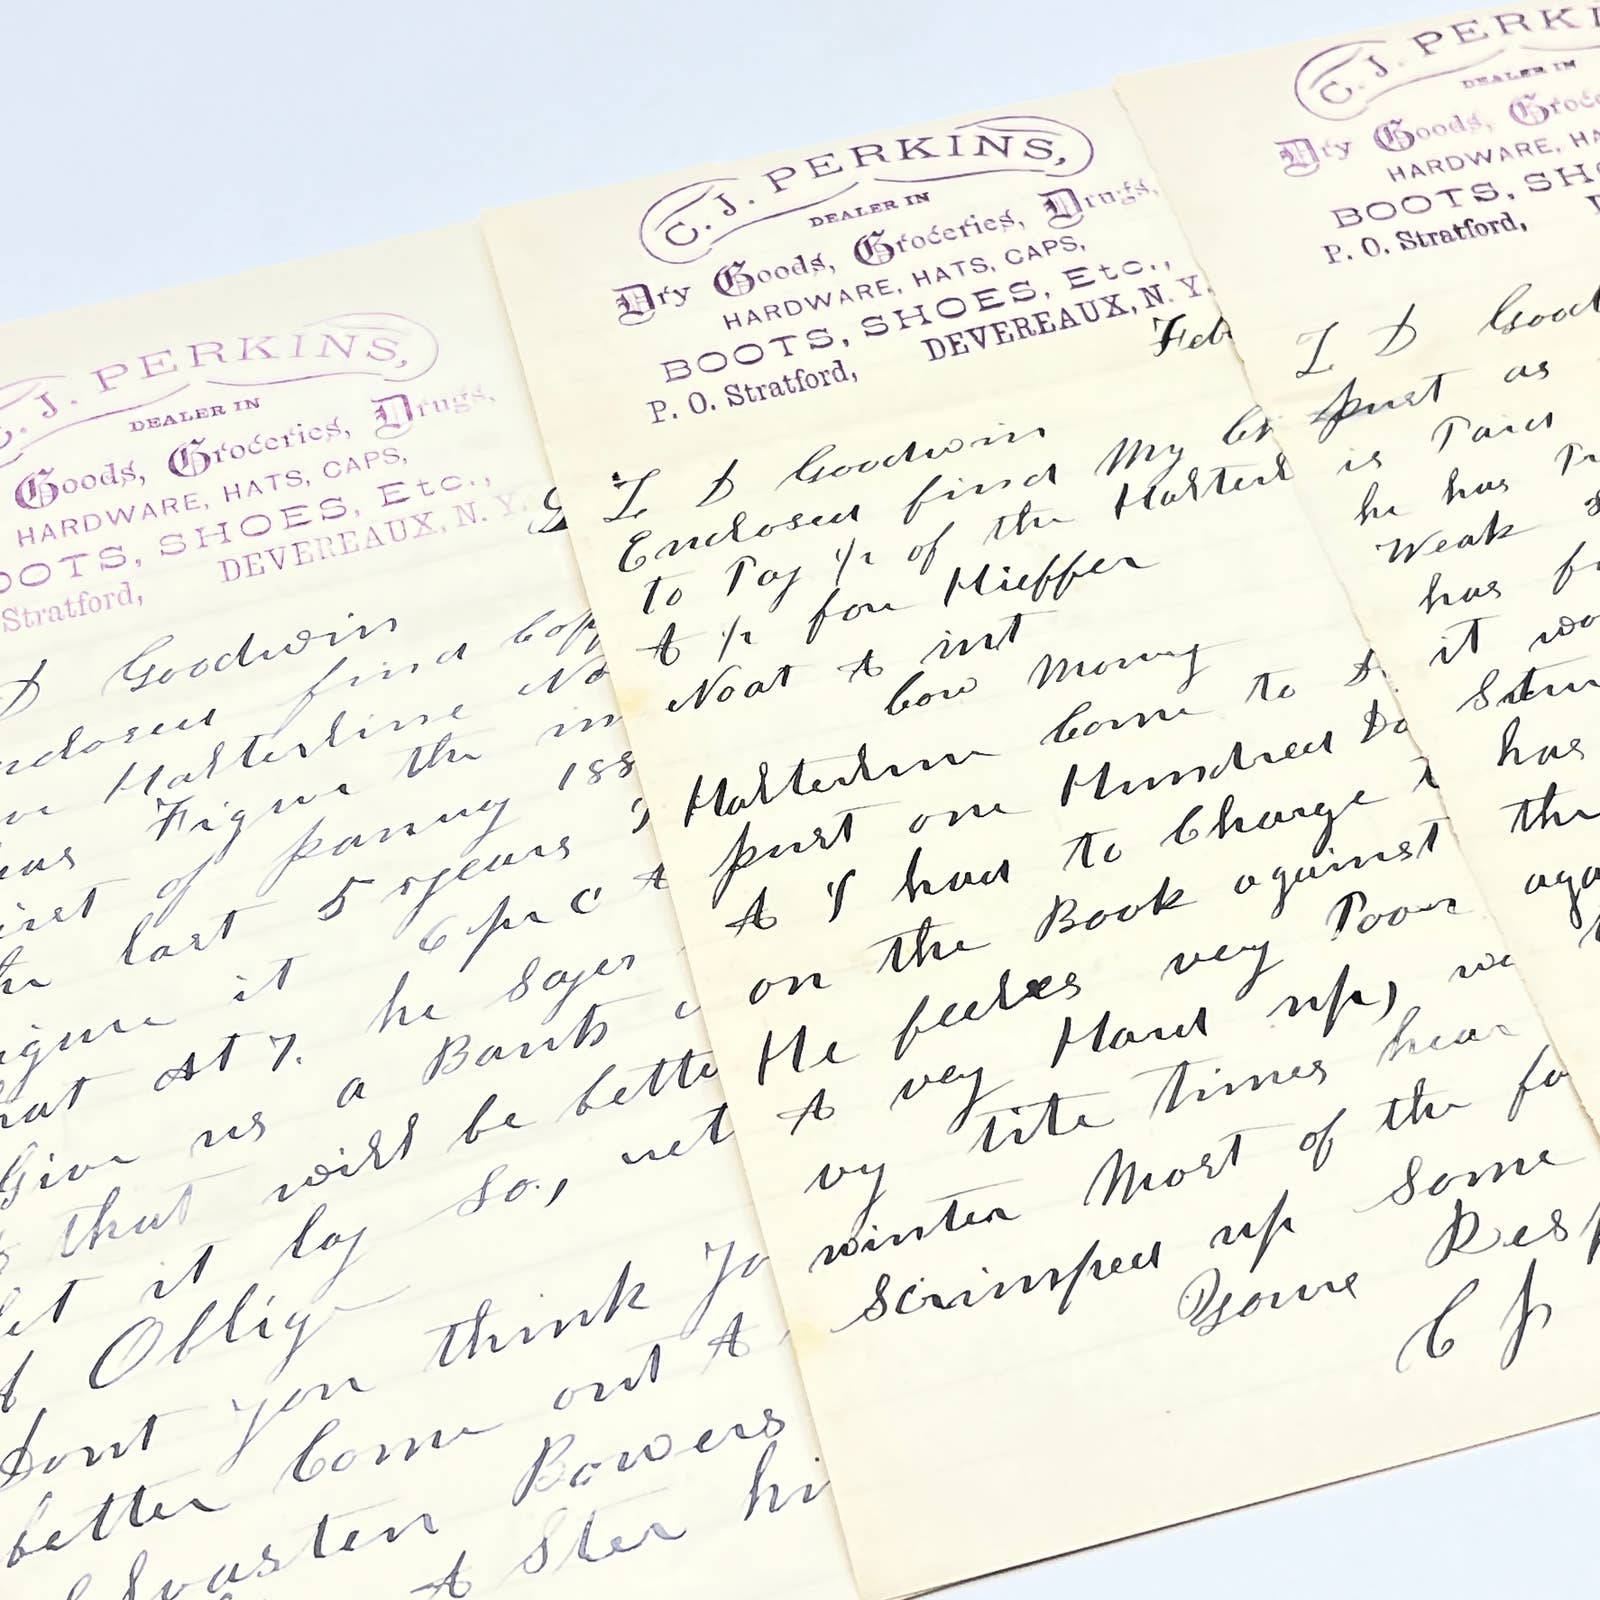 C. J. PERKINS,
DEALER IN
Goods, Groceries, Drugs,
HARDWARE, HATS, CAPS,
OOTS, SHOES, Etc.,
DEVEREAUX, N. Y.
Stratford,
D Goodwin
nclosed find Copy
Halterline No
has Figure the in
irst of january 188
the last 5 years
igure it 6 pr c &
at 7. he sayes
Give us a Bank
that will be bette
let it lay so., net
Oblig
Dont you think yo
better Come out &
Bowers
& Ster hi
C. J. PERKINS,
DEALER IN
Dry Goods, Groceries, Drugs,
HARDWARE, HATS, CAPS,
BOOTS, SHOES, Etc.,
P. O. Stratford, DEVEREAUX, N. Y.
Feb
L D Goodwin
Enclosed find My
to Pay 1/2 of the Halterl
& 1/2 for Hieffer
Noat & int
Cow Money
Halterline Come to
just one Hundred Do
& I had to Charge
on the Book against
He feeles very Poor
& vey Hard up, we
vy tite times hear
winter Most of the fo
Scrimped up Some
Yours Resp
C J
C. J. PERKI
DEALER IN
Dry Goods, Groce
HARDWARE, HA
BOOTS, SHO
P. O. Stratford,
L D Good
just as
is Paid
he has Pr
Weak
has
it wo
has
the
aga